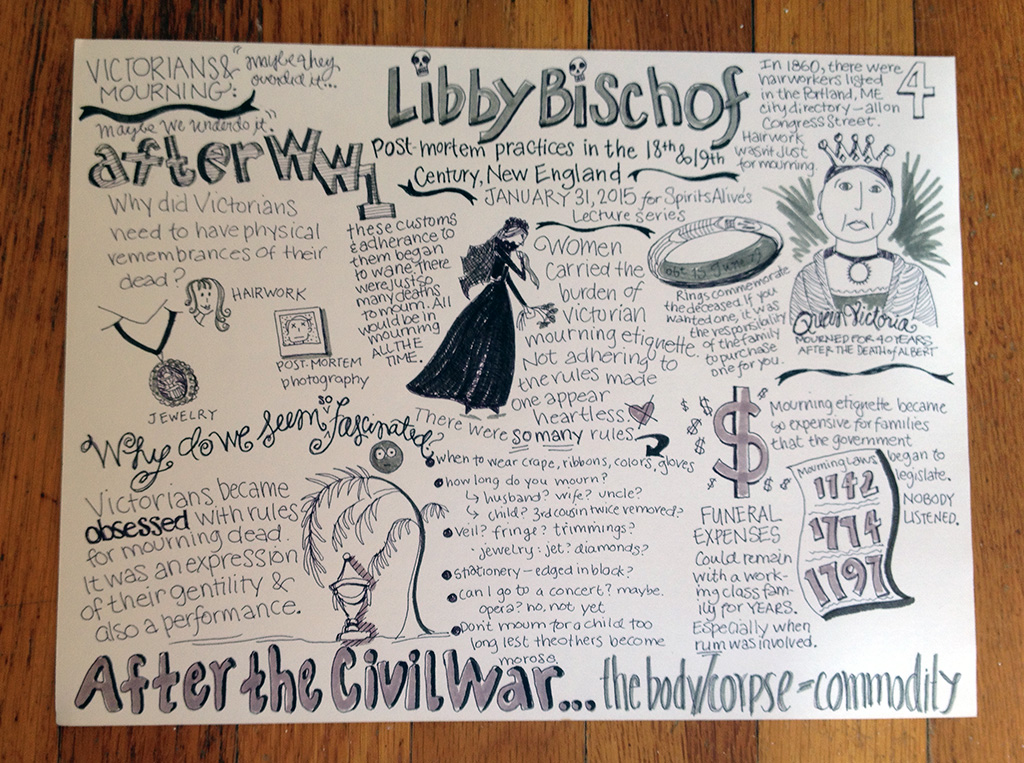 VICTORIANS &
MOURNING:
"maybe they
overdid it...
maybe we underdo it."
Libby Bischof
Post-mortem practices in the 18th & 19th
Century, New England
JANUARY 31, 2015 for Spirits Alive's
Lecture series
In 1860, there were
4
hairworkers listed
in the Portland, ME
city directory – all on
Congress Street.
Hairwork
wasn't just
for mourning.
after WW1
these customs
& adherence to
them began
to wane. There
were just so
many deaths
to mourn. All
would be in
mourning
ALL THE
TIME.
Why did Victorians
need to have physical
remembrances of their
dead?
HAIRWORK
POST-MORTEM
photography
JEWELRY
Women
carried the
burden of
victorian
mourning etiquette.
Not adhering to
the rules made
one appear
heartless.
Rings commemorate
the deceased. If you
wanted one, it was
the responsibility
of the family
to purchase
one for you.
Queen Victoria
MOURNED FOR 40 YEARS
AFTER THE DEATH of ALBERT
Why do we seem so fascinated?
Victorians became
obsessed with rules
for mourning dead.
It was an expression
of their gentility &
also a performance.
There were so many rules.
when to wear crape, ribbons, colors, gloves
how long do you mourn?
husband? wife? uncle?
child? 3rd cousin twice removed?
veil? fringe? trimmings?
jewelry: jet? diamonds?
stationery – edged in black?
can I go to a concert? maybe.
opera? no, not yet
Don't mourn for a child too
long lest the others become
morose.
$
Mourning etiquette became
so expensive for families
that the government
began to
legislate.
NOBODY
LISTENED.
Mourning Laws
1742
1774
1797
FUNERAL
EXPENSES
Could remain
with a work-
ing class fam-
ily for YEARS.
Especially when
rum was involved.
After the Civil War... the body/corpse = commodity